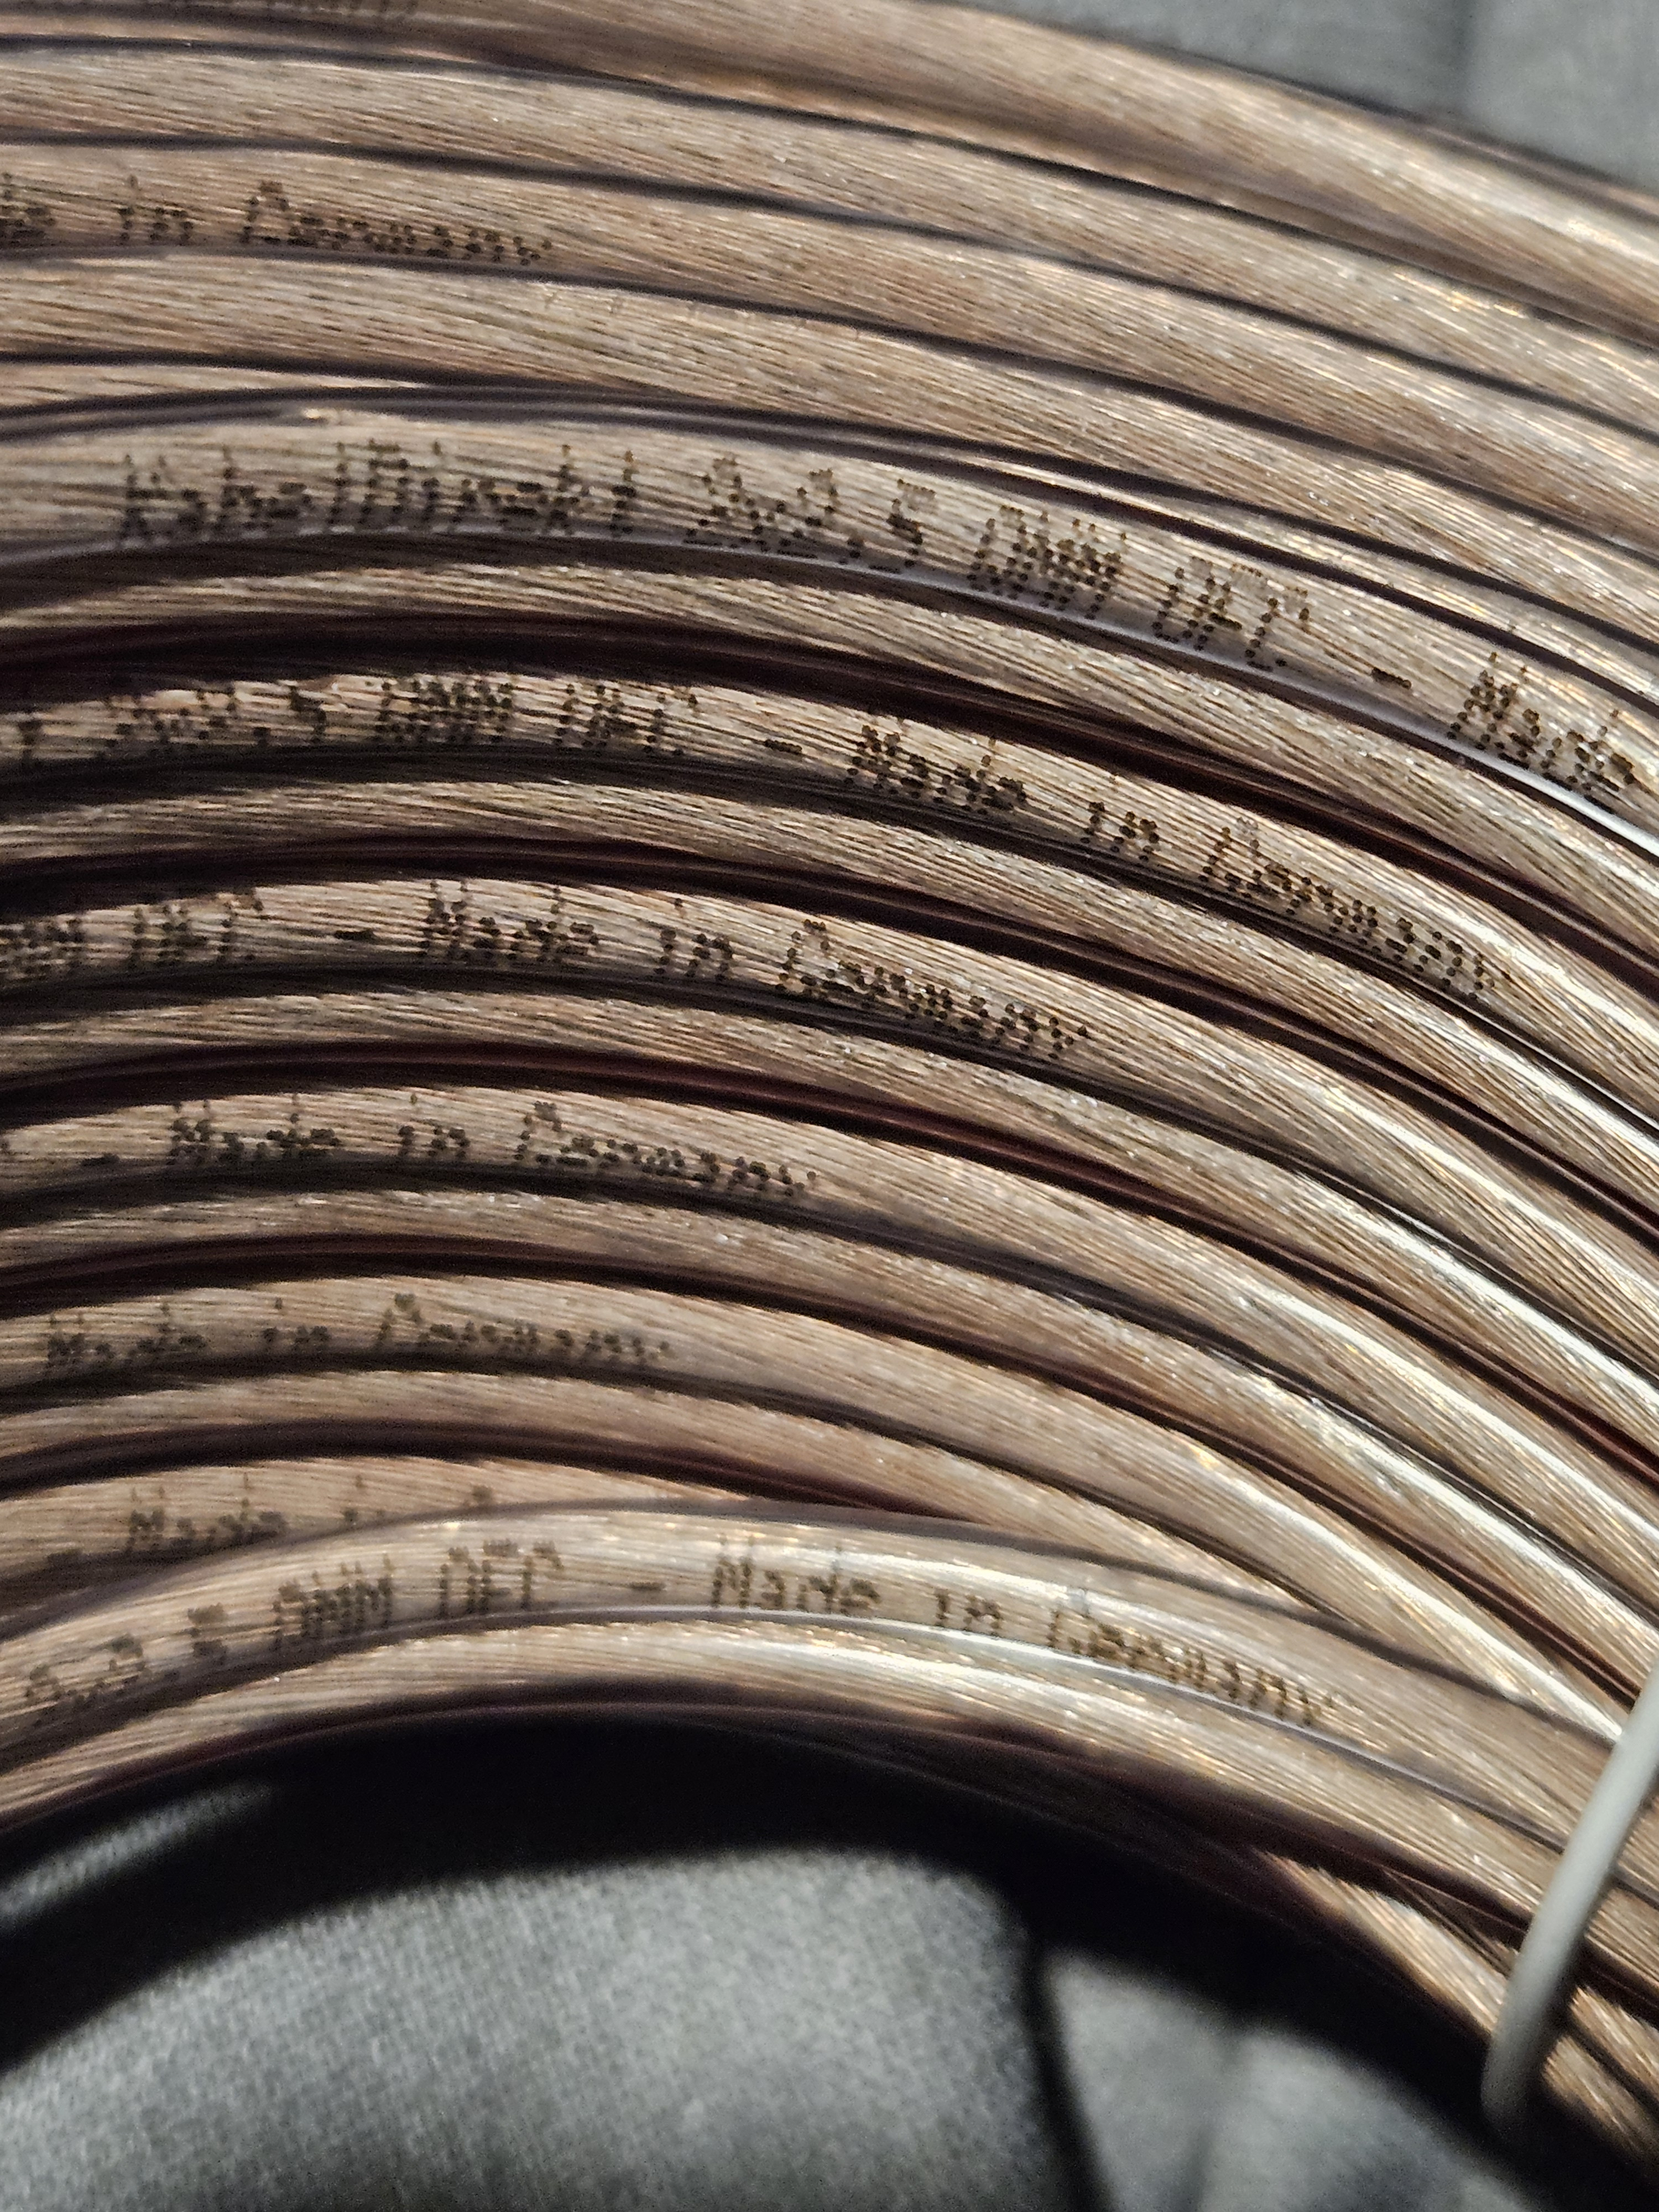 in Germany
KabelDirekt 2x2,5 QMM OFC - Made
2x2,5 QMM OFC - Made in Germany
QMM OFC - Made in Germany
- Made in Germany
Made in Germany
- Made in
2x2,5 QMM OFC - Made in Germany